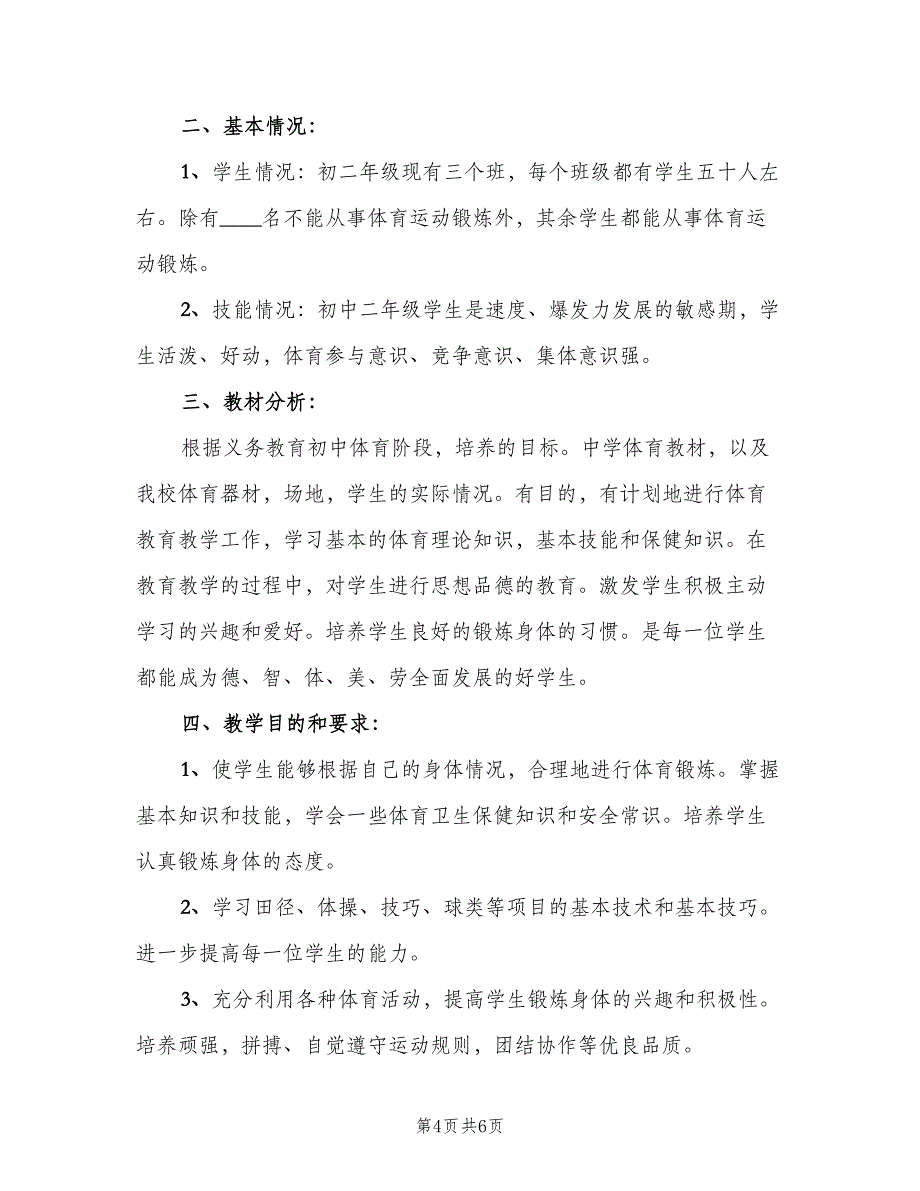 二、基本情况：
1、学生情况：初二年级现有三个班，每个班级都有学生五十人左
右。除有____名不能从事体育运动锻炼外，其余学生都能从事体育运
动锻炼。
2、技能情况：初中二年级学生是速度、爆发力发展的敏感期，学
生活泼、好动，体育参与意识、竞争意识、集体意识强。
三、教材分析：
根据义务教育初中体育阶段，培养的目标。中学体育教材，以及
我校体育器材，场地，学生的实际情况。有目的，有计划地进行体育
教育教学工作，学习基本的体育理论知识，基本技能和保健知识。在
教育教学的过程中，对学生进行思想品德的教育。激发学生积极主动
学习的兴趣和爱好。培养学生良好的锻炼身体的习惯。是每一位学生
都能成为德、智、体、美、劳全面发展的好学生。
四、教学目的和要求：
1、使学生能够根据自己的身体情况，合理地进行体育锻炼。掌握
基本知识和技能，学会一些体育卫生保健知识和安全常识。培养学生
认真锻炼身体的态度。
2、学习田径、体操、技巧、球类等项目的基本技术和基本技巧。
进一步提高每一位学生的能力。
3、充分利用各种体育活动，提高学生锻炼身体的兴趣和积极性。
培养顽强，拼搏、自觉遵守运动规则，团结协作等优良品质。
第4页共6页